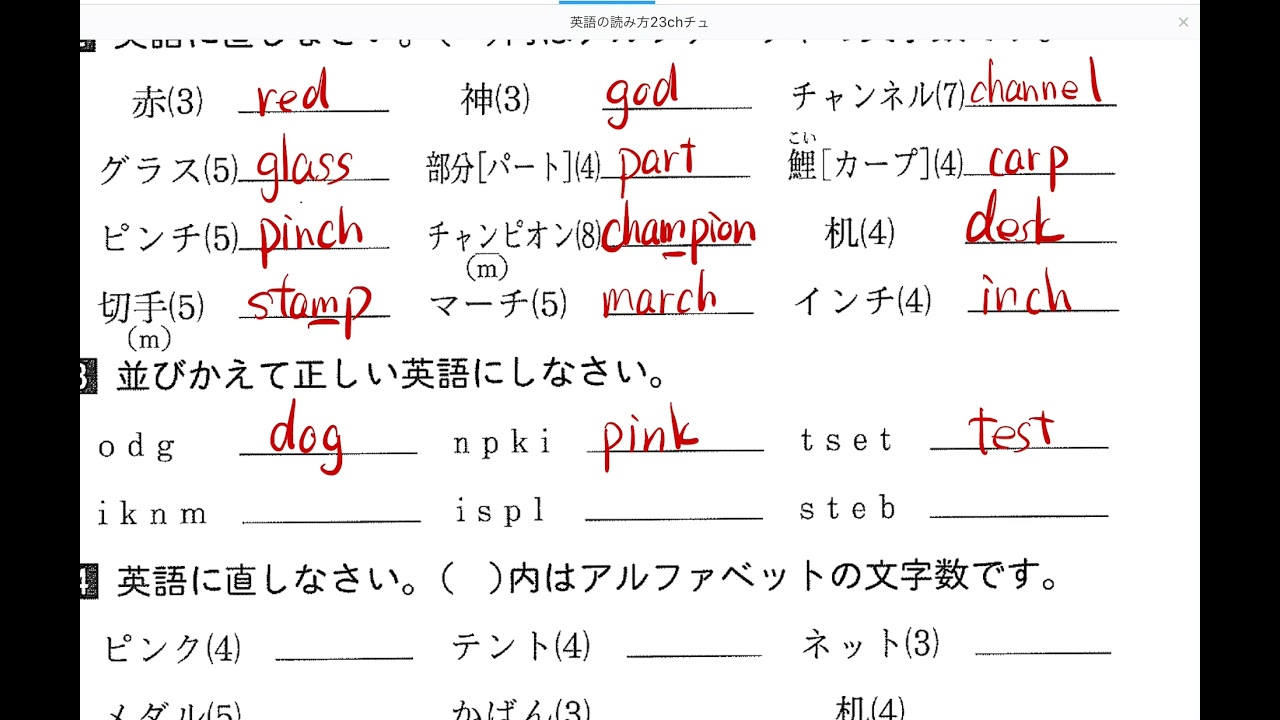 英語の読み方23chチュ
×
英語に直しなさい。( )内はアルファベットの文字数です。
赤(3) red 神(3) god チャンネル(7) channel
グラス(5) glass 部分[パート](4) part 鯉[カープ](4) carp
こい
ピンチ(5) pinch チャンピオン(8) champion 机(4) desk
(m)
切手(5) stamp マーチ(5) march インチ(4) inch
(m)
3 並びかえて正しい英語にしなさい。
odg dog npki pink tset test
iknm ispl steb
4 英語に直しなさい。( )内はアルファベットの文字数です。
ピンク(4) テント(4) ネット(3)
メダル(5) かばん(3) 机(4)